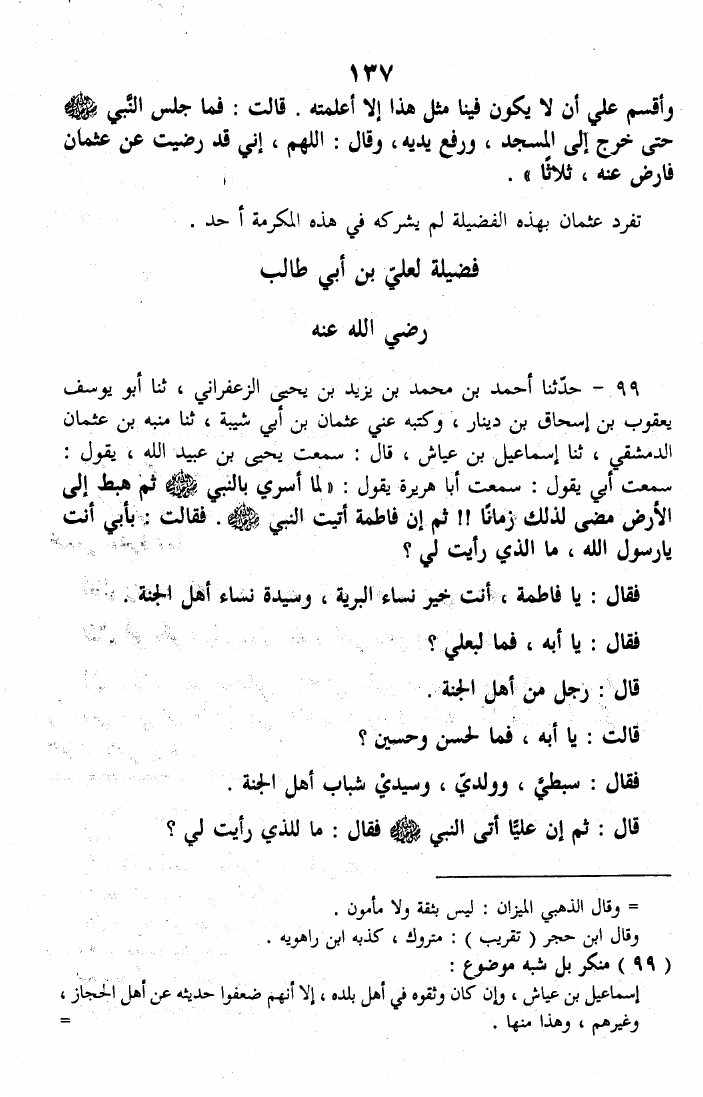 ١٣٧
وأقسم علي أن لا يكون فينا مثل هذا إلا أعلمته . قالت : فما جلس النَّبي ﷺ
حتى خرج إلى المسجد ، ورفع يديه، وقال : اللهم ، إني قد رضيت عن عثمان
فارض عنه ، ثلاثًا » .
تفرد عثمان بهذه الفضيلة لم يشركه في هذه المكرمة أ حد .
فضيلة لعليّ بن أبي طالب
رضي الله عنه
٩٩ - حدّثنا أحمد بن محمد بن يزيد بن يحيى الزعفراني ، ثنا أبو يوسف
يعقوب بن إسحاق بن دينار ، وكتبه عني عثمان بن أبي شيبة ، ثنا منبه بن عثمان
الدمشقي ، ثنا إسماعيل بن عياش ، قال : سمعت يحيى بن عبيد الله ، يقول :
سمعت أبي يقول : سمعت أبا هريرة يقول : «لما أسري بالنبي ﷺ ثم هبط إلى
الأرض مضى لذلك زمانًا !! ثم إن فاطمة أتيت النبي ﷺ . فقالت : بأبي أنت
يارسول الله ، ما الذي رأيت لي ؟
فقال : يا فاطمة ، أنت خير نساء البرية ، وسيدة نساء أهل الجنة .
فقال : يا أبه ، فما لبعلي ؟
قال : رجل من أهل الجنة .
قالت : يا أبه ، فما لحسن وحسين ؟
فقال : سبطيَّ ، وولديّ ، وسيديْ شباب أهل الجنة .
قال : ثم إن عليًّا أتى النبي ﷺ فقال : ما للذي رأيت لي ؟
= وقال الذهبي الميزان : ليس بثقة ولا مأمون .
وقال ابن حجر ( تقريب ) : متروك ، كذبه ابن راهويه .
( ٩٩ ) منكر بل شبه موضوع :
إسماعيل بن عياش ، وإن كان وثقوه في أهل بلده ، إلا أنهم ضعفوا حديثه عن أهل الحجاز ،
وغيرهم ، وهذا منها . =